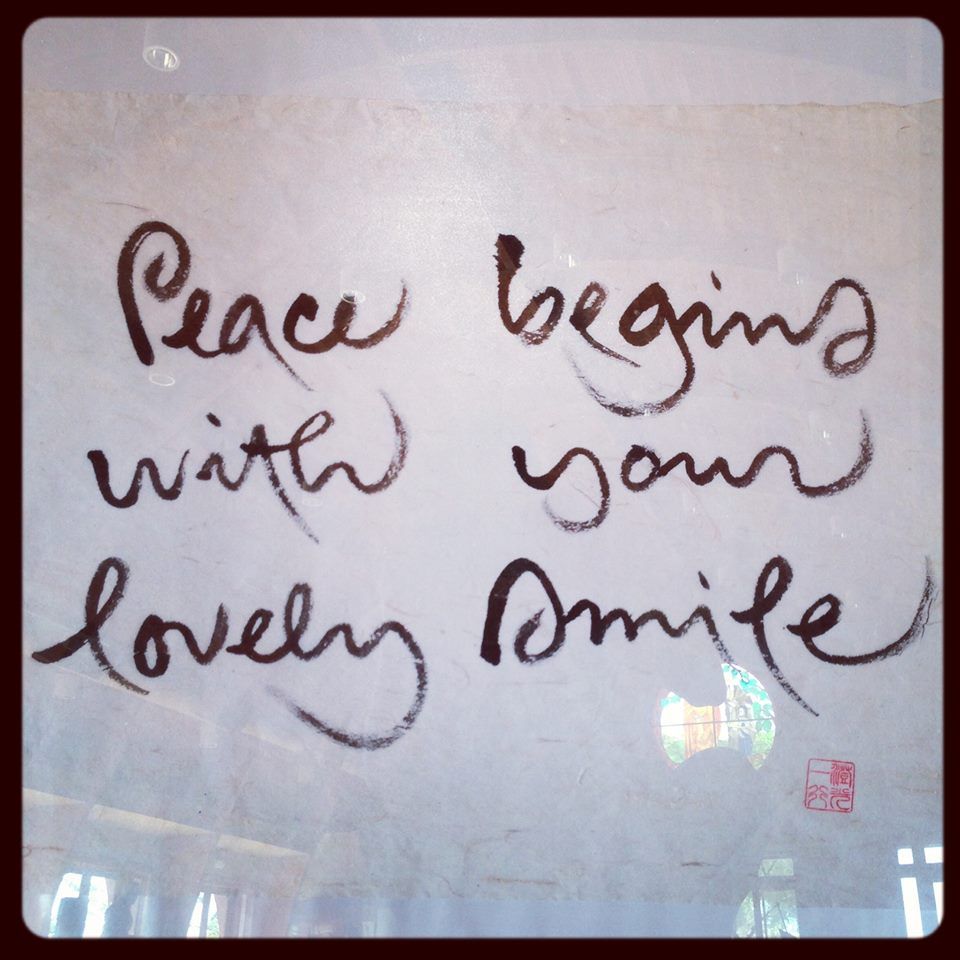 Peace begins
with your
lovely smile